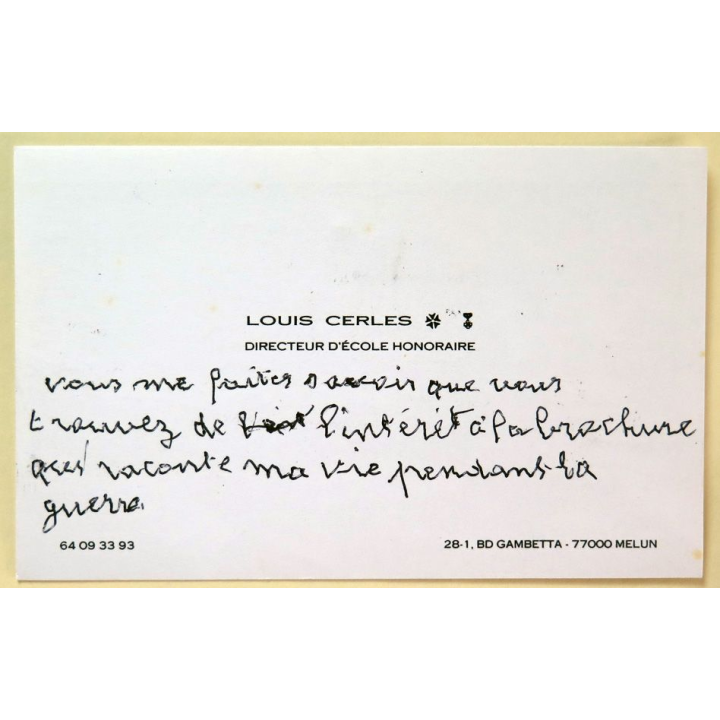 LOUIS CERLES
DIRECTEUR D'ÉCOLE HONORAIRE
vous me faites savoir que vous
trouvez de l'intérêt à la brochure
qui raconte ma vie pendant la
guerre.
64 09 33 93
28-1, BD GAMBETTA - 77000 MELUN